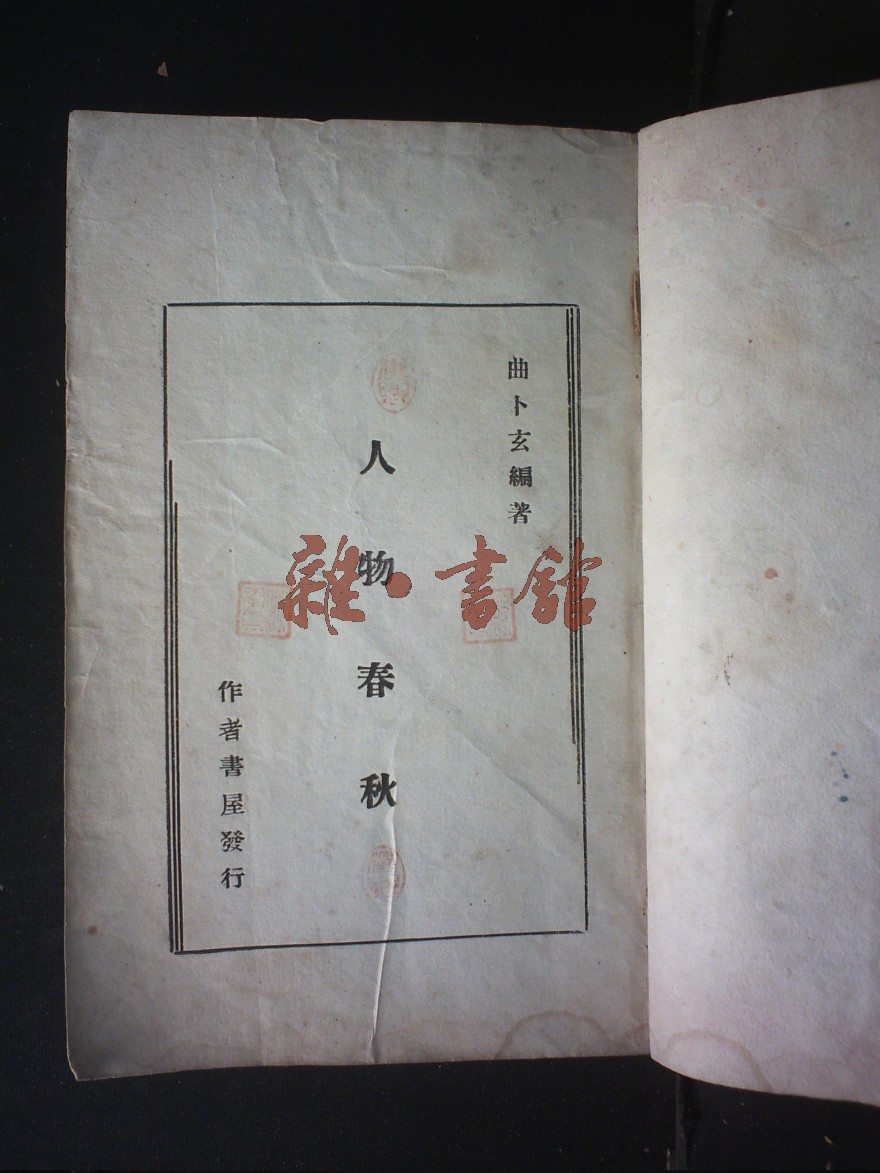 曲卜玄編著
人物春秋
作者書屋發行
雜·書館